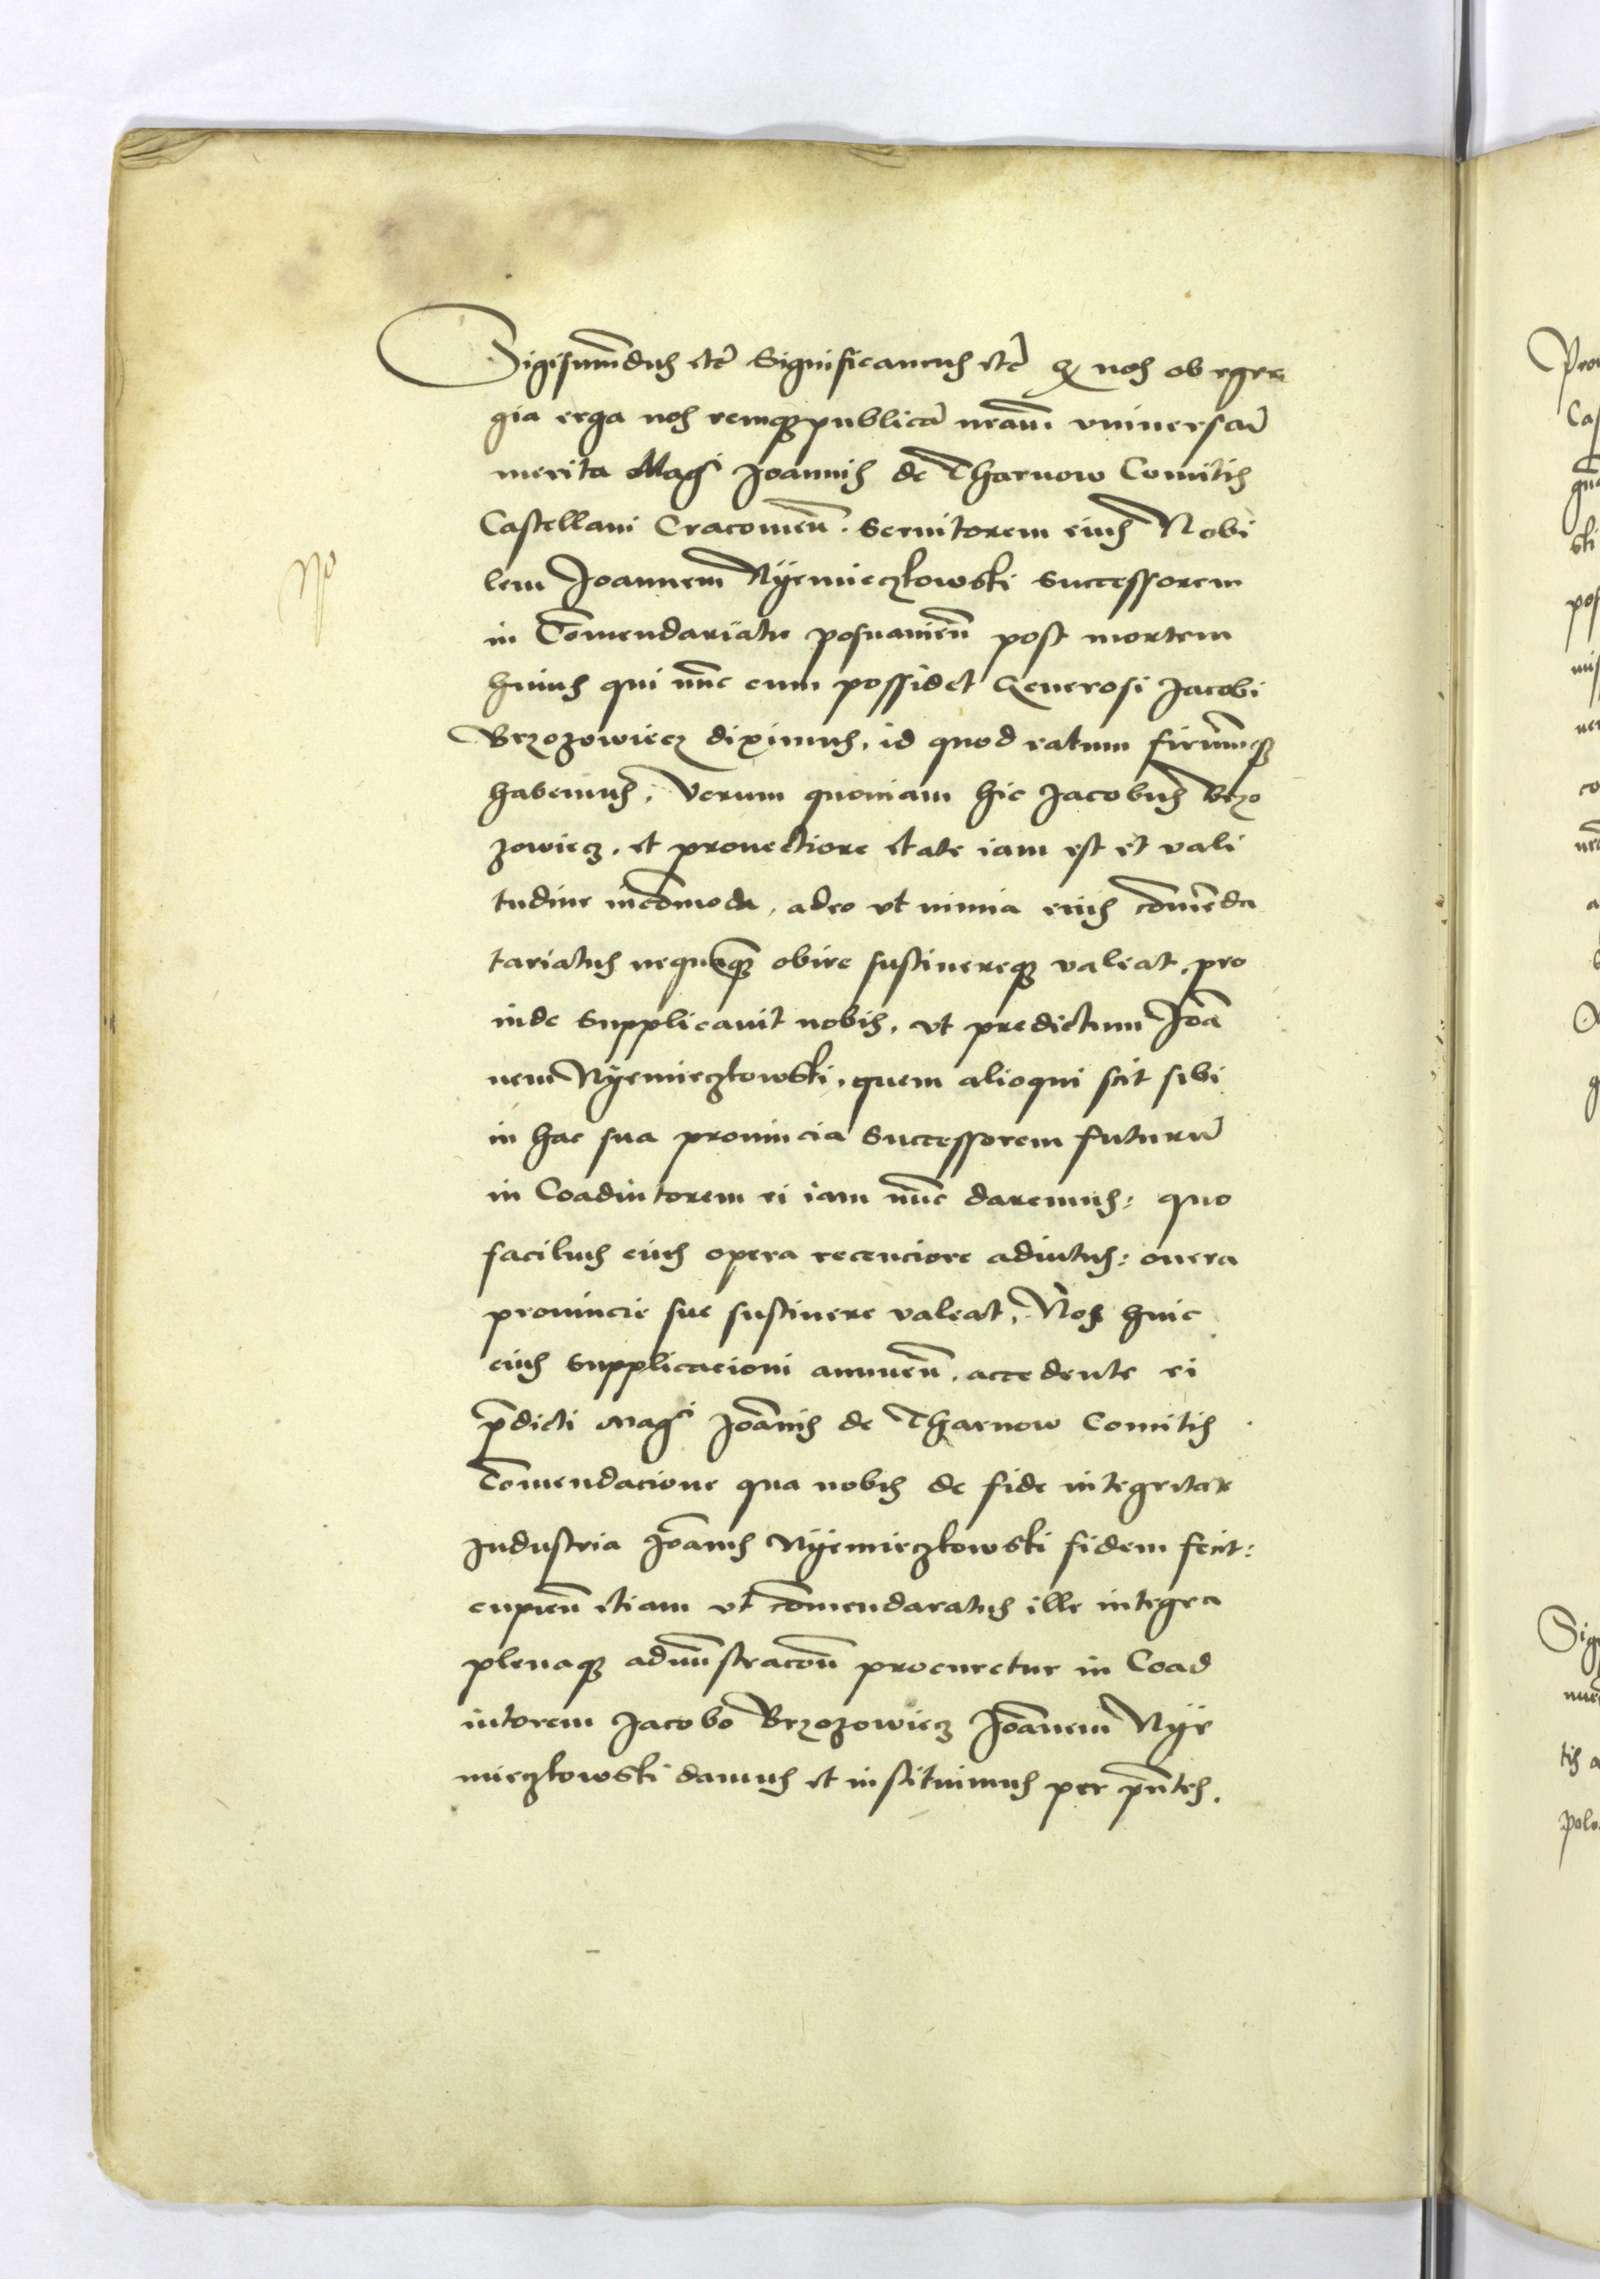 Sigismundus etc Significamus etc Q nos ob egre
gia erga nos remq publicā nrām vniuersam
merita Magci Joannis de Tharnow Comitis
Castellani Cracouien. Seruitorem eius Nobi
lem Joannem Nyemieczkowski Successorem
in Comendariatu posnanien post mortem
huius qui nunc eum possidet Generosi Jacobi
Brzozowiecz diximus, id quod ratum firmumq
habemus. Verum quoniam hic Jacobus Brzo
zowiecz, et prouectiore etate iam est et vali
tudine incomoda, adeo vt munia eius comenda
tariatus nequaq obire sustinereq valeat, pro
inde Supplicauit nobis, vt predictum Joā
nem Nyemieczkowski, quem alioqui scit sibi
in hac sua prouincia Successorem futurū
in Coadiutorem ei iam nunc daremus: quo
facilius eius opera recenciore adiutus: onera
prouincie sue sustinere valeat, Nos huic
eius Supplicacioni annuen, accedente ei
pdicti Magci Joānis de Tharnow Comitis
Comendacione qua nobis de fide integritate
Industria Joānis Nyemieczkowski fidem fecit:
cupien etiam vt comendaratus ille integra
plenaq admnstracōn procuretur in Coad
iutorem Jacobo Brzozowiecz Joānem Nye
mieczkowski damus et instituimus per pntes.